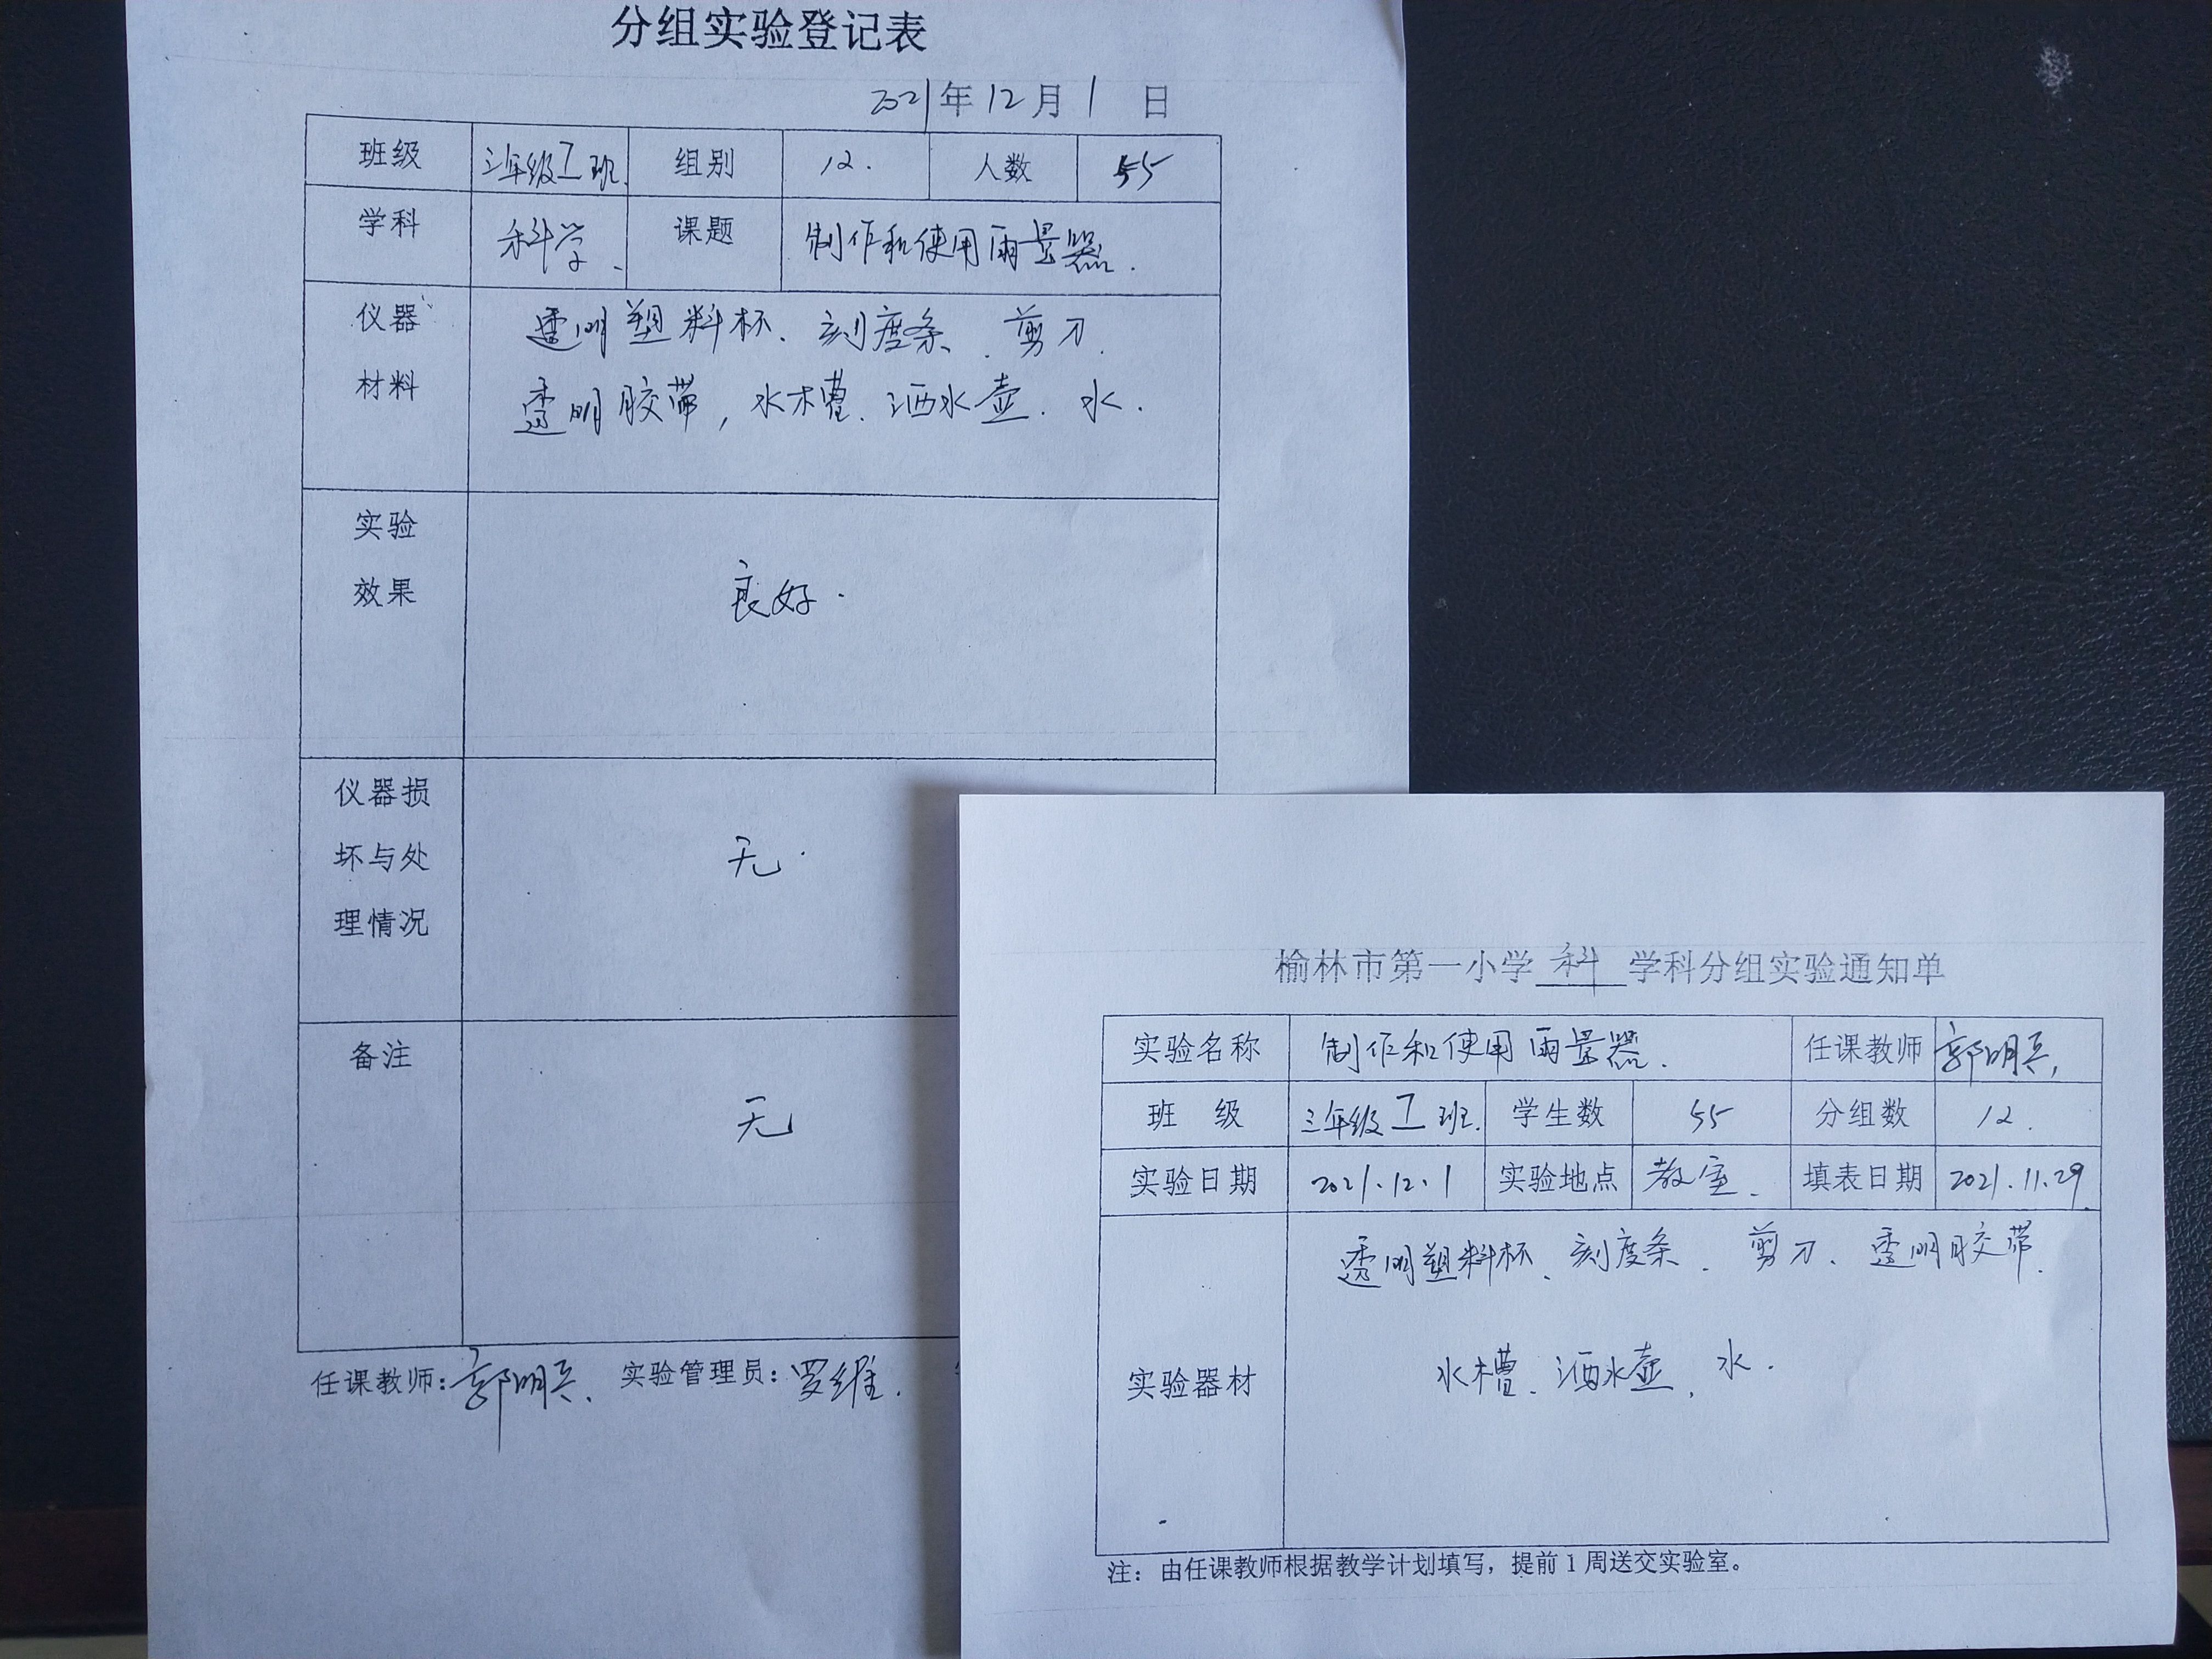 分组实验登记表
2021年12月1日
班级 三年级1班. 组别 12. 人数 55
学科 科学、 课题 制作和使用雨量器.
仪器 透明塑料杯、刻度条、剪刀.
材料 透明胶带,水槽.洒水壶.水.
实验
效果 良好.
仪器损
坏与处 无.
理情况
备注
无
任课教师:郭明兵、 实验管理员:罗维.
榆林市第一小学 科 学科分组实验通知单
实验名称 制作和使用雨量器. 任课教师 郭明兵,
班 级 三年级1班. 学生数 55 分组数 12.
实验日期 2021.12.1 实验地点 教室、 填表日期 2021.11.29
透明塑料杯、刻度条.剪刀、透明胶带.
水槽、洒水壶、水.
实验器材
注:由任课教师根据教学计划填写,提前1周送交实验室。